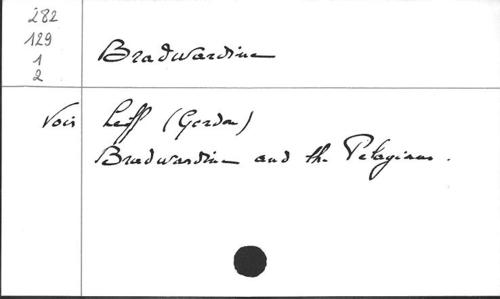 282
129
1
2
Bradwardine
Voir Leff (Gordon)
Bradwardine and the Pelagians.